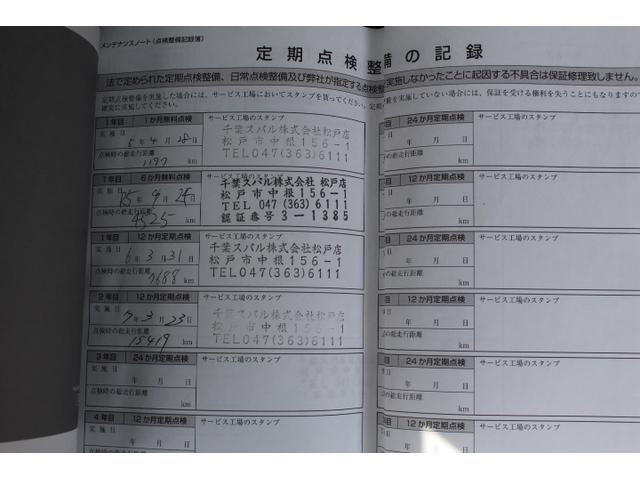 メンテナンスノート(点検整備記録簿)
定期点検整備の記録
法で定められた定期点検整備、日常点検整備及び弊社が指定する点検整
実施しなかったことに起因する不具合は保証修理致しません。
定期点検整備を実施した場合には、サービス工場においてスタンプを貰ってください。定期
検を実施していない場合には、保証を受ける権利を失うこともあります
確実に実施してください。
1年目 1か月無料点検
サービス工場のスタンプ
実施日
5年4月28日
点検時の総走行距離
1197 km
千葉スバル株式会社松戸店
松戸市中根156-1
TEL047(363)6111
1年目 6か月無料点検
サービス工場のスタンプ
実施日
点検時の総走行距離
4525 km
千葉スバル株式会社 松戸店
松戸市中根156-1
TEL 047 (363) 6111
認証番号 3-1385
1年目 12か月定期点検
サービス工場のスタンプ
実施日
6年3月31日
点検時の総走行距離
7688 km
千葉スバル株式会社松戸店
松戸市中根156-1
TEL047(363)6111
2年目 12か月定期点検
サービス工場のスタンプ
実施日
7年3月23日
点検時の総走行距離
15419 km
千葉スバル株式会社松戸店
松戸市中根156-1
TEL047(363)6111
3年目 24か月定期点検
サービス工場のスタンプ
実施日
年 月 日
点検時の総走行距離
km
4年目 12か月定期点検
サービス工場のスタンプ
実施日
年 月 日
目 24か月定期点検
サービス工場のスタンプ
年 月 日
の総走行距離
km
目 12か月定期点検
サービス工場のスタンプ
年 月 日
の総走行距離
km
目 12か月定期点検
サービス工場のスタンプ
年 月 日
の総走行距離
km
目 24か月定期点検
サービス工場のスタンプ
年 月 日
の総走行距離
km
目 12か月定期点検
サービス工場のスタンプ
年 月 日
の総走行距離
km
目 12か月定期点検
サービス工場のスタンプ
年 月 日